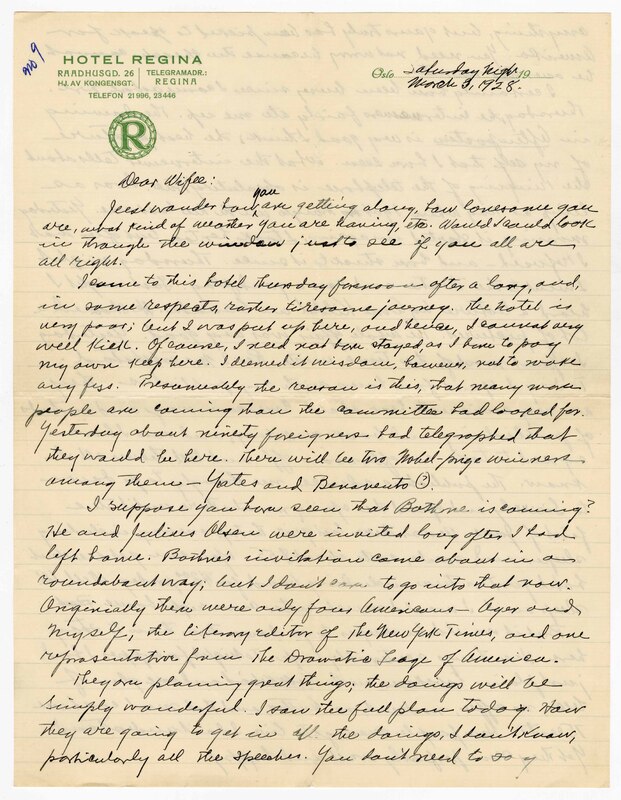 no 9
HOTEL REGINA
RAADHUSGD. 26
HJ. AV KONGENSGT.
TELEGRAMADR.:
REGINA
TELEFON 21996, 23446
R
Oslo Saturday night 19
March 3, 1928.
Dear Wifee:
Jeest wonder how you are getting along, how lonesome you
are, what kind of weather you are having, etc. Would I could look
in through the window just to see if you all are
all right.
I came to this hotel Thursday forenoon after a long, and,
in some respects, rather tiresome journey. The hotel is
very poor; but I was put up here, and hence, I cannot very
well kick. Of course, I need not have stayed, as I have to pay
my own keep here. I deemed it wisdom, however, not to make
any fuss. Presumeably the reason is this, that many more
people are coming than the committee had looked for.
Yesterday about ninety foreigners had telegraphed that
they would be here. There will be two Nobel-prize winners
among them — Yates and Benavento (?).
I suppose you have seen that Bothne is coming?
He and Julius Olsen were invited long after I had
left home. Bothne's invitation came about in a
roundabout way; but I don't care to go into that now.
Originally there were only four Americans — Ager and
Myself, the literary editor of the New York Times, and one
representative from the Dramatic Leage of America.
They are planing great things; the doings will be
simply wonderful. I saw the full plan today. How
they are going to get in all the doings, I don't know,
particularly all the speeches. You don't need to say